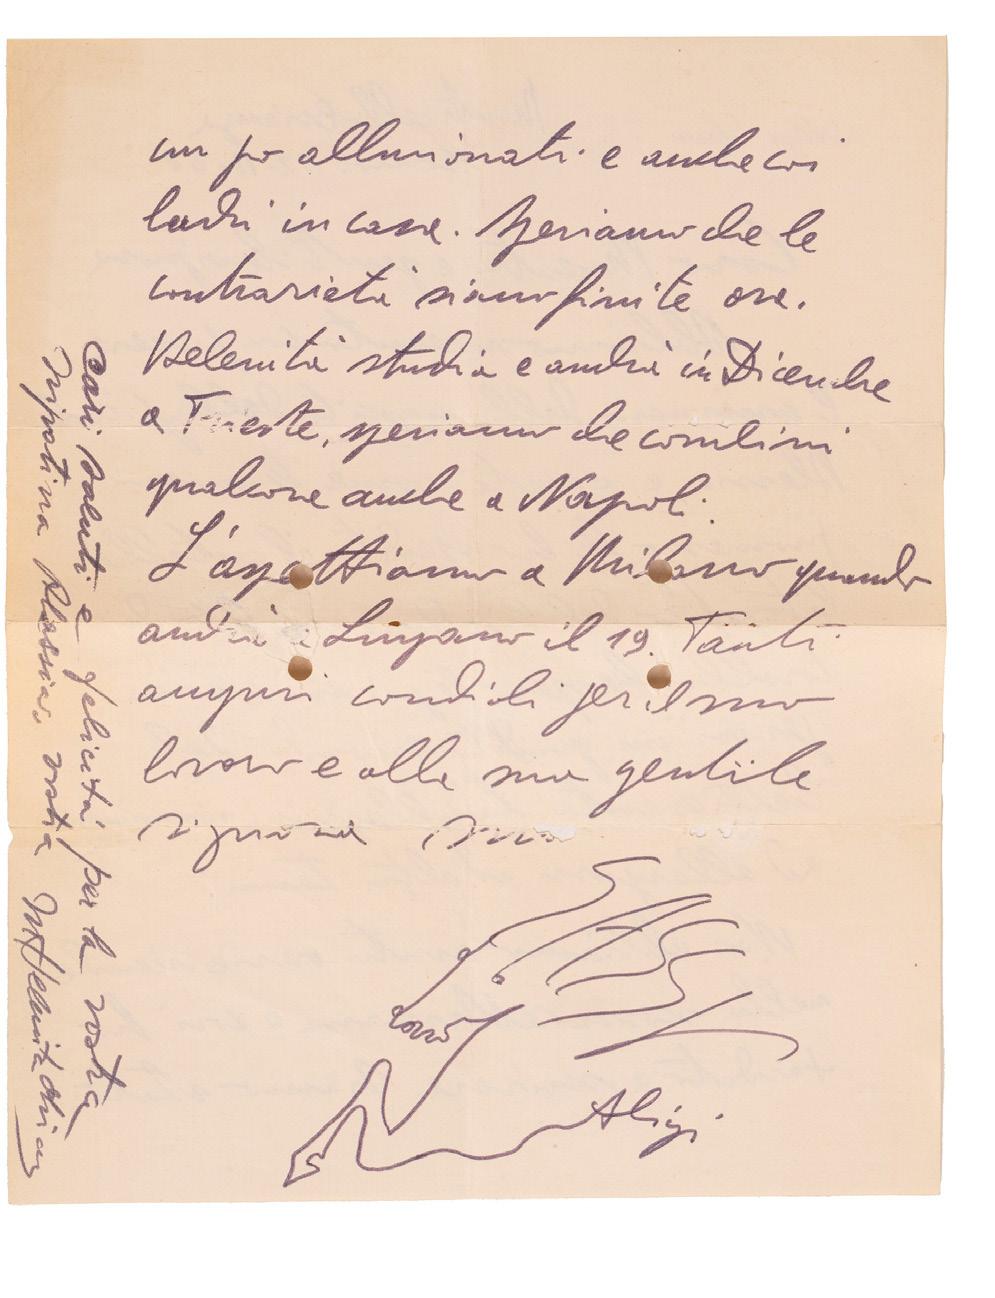 un po alluvionati e anche coi
ladri in casa. Speriamo che le
contrarietà siano finite ora.
Helenita studia e andrà in Dicembre
a Trieste, speriamo che combini
qualcosa anche a Napoli.
L'aspettiamo a Milano quando
andrà a Lugano il 19. Tanti
auguri cordiali per il suo
lavoro e alla sua gentile
signora suo
Aligi
Cari saluti e felicità per la vostra
nipotina vostra Helenita